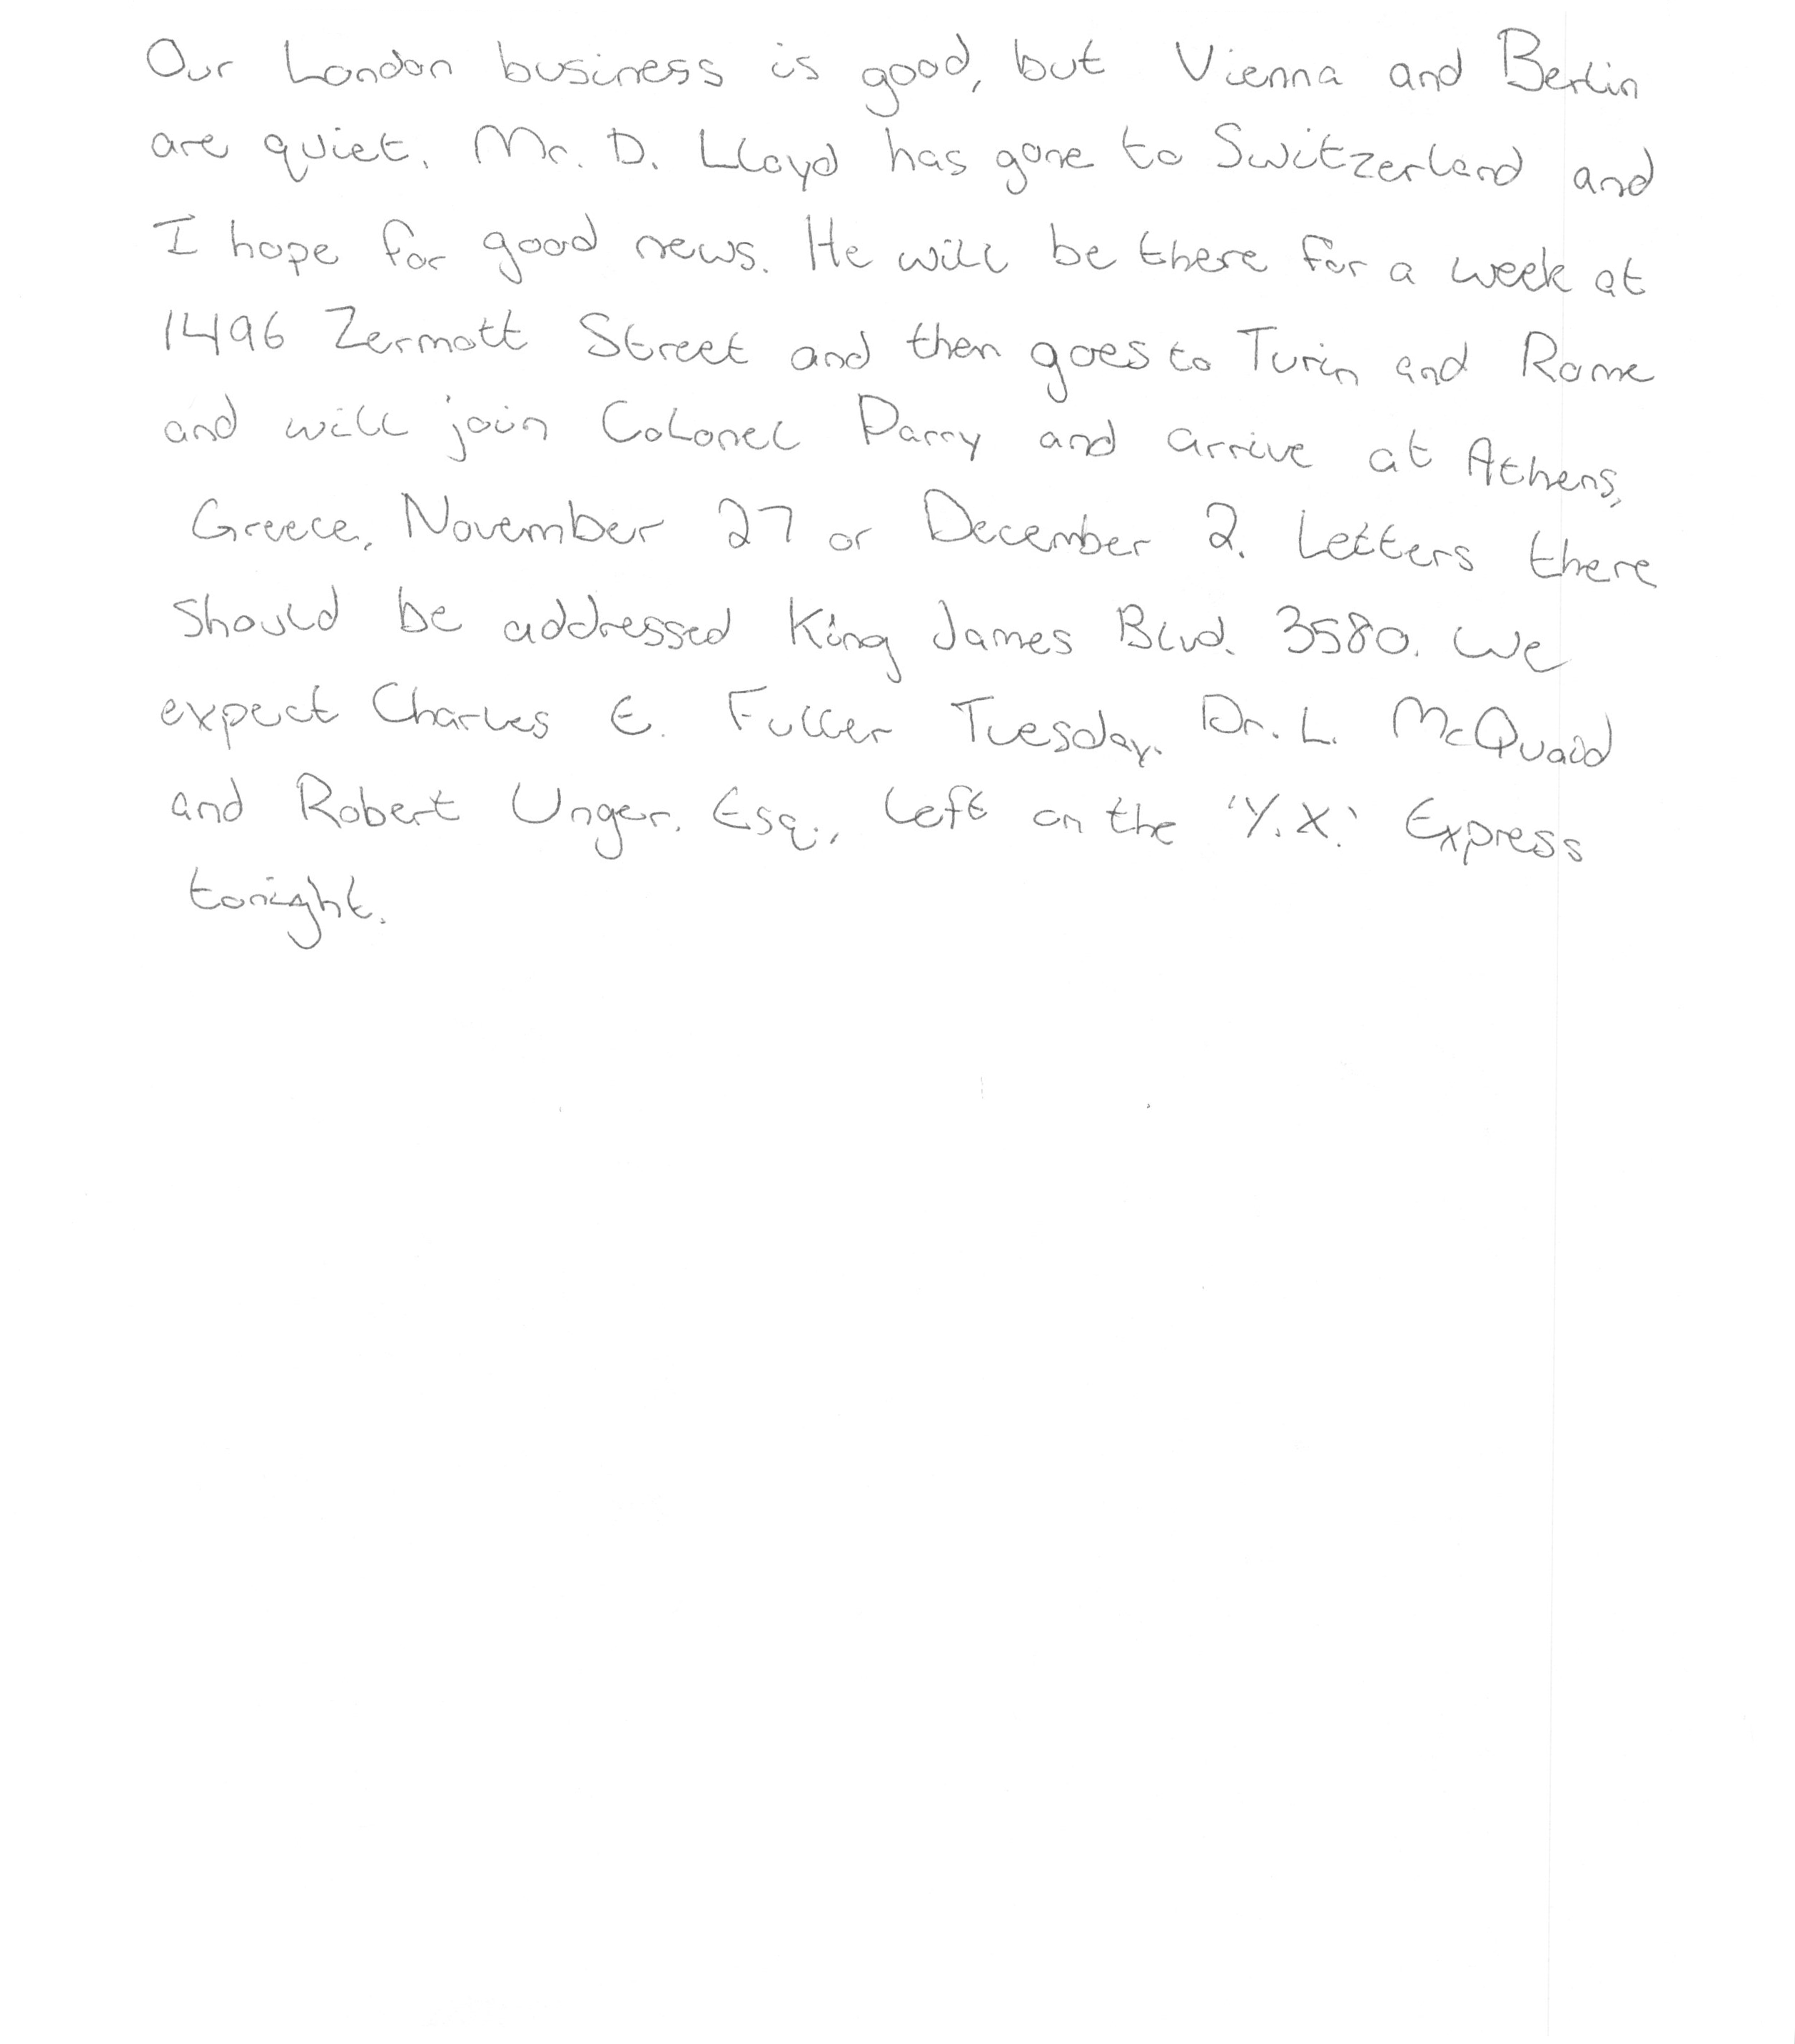 Our London business is good, but Vienna and Berlin
are quiet. Mr. D. Lloyd has gone to Switzerland and
I hope for good news. He will be there for a week at
1496 Zermott Street and then goes to Turin and Rome
and will join Colonel Parry and arrive at Athens,
Greece, November 27 or December 2. Letters there
should be addressed King James Blvd. 3580. We
expect Charles E. Fuller Tuesday. Dr. L. McQuaid
and Robert Unger. Esq., left on the 'Y.X.' Express
tonight.